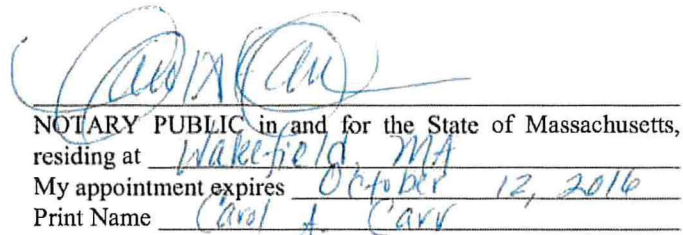 Carol A Carr
NOTARY PUBLIC in and for the State of Massachusetts,
residing at Wakefield, MA
My appointment expires October 12, 2016
Print Name Carol A. Carr